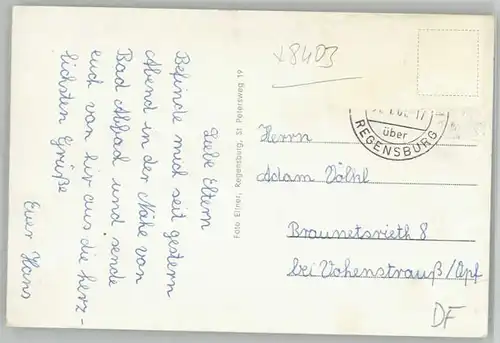 Liebe Eltern
Befinde mich seit gestern
Abend in der Nähe von
Bad Abbad und sende
euch von hir aus die herz-
lichsten Grüße
Euer Hans
Foto Eltner, Regensburg, St. Petersweg 16
x8403
über
REGENSBURG
Herrn
Adam Völkl
Braunetsrieth 8
bei Vohenstrauß/Opf
DF